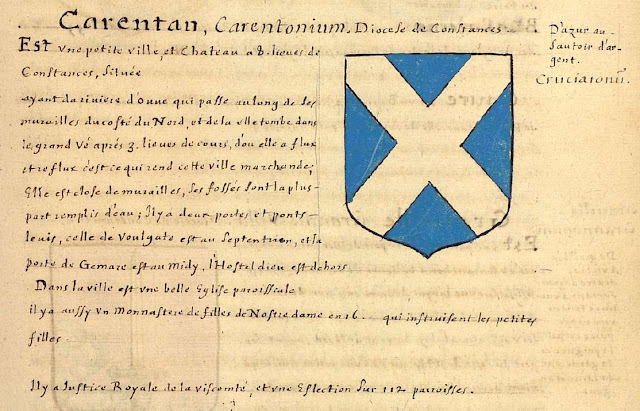 Carentan, Carentonium. Diocese de Constances.
Est une petite ville, et Chateau a 8. lieues de
Constances, située
ayant la riviere d'ouve qui passe au long de ses
murailles du costé du Nord, et de la elle tombe dans
le grand Vé aprés 3. lieues de cours, d'ou elle a flux
et reflux c'est ce qui rend cette ville marchande;
Elle est close de murailles, ses fossés sont la plus-
part remplis d'eau; Il y a deux portes et ponts
levis, celle de Voulgate est au Septentrion, et la
porte de Gemare est au midy, l'Hostel dieu est dehors.
Dans la ville est une belle Eglise paroissiale
il y a aussy un Monnastere de filles de Nostre dame en 16 qui instruisent les petites
filles
Il y a Justice Royale de la viscomté, et une Eslection sur 112 paroisses.
D'azur au
sautoir d'ar-
gent.